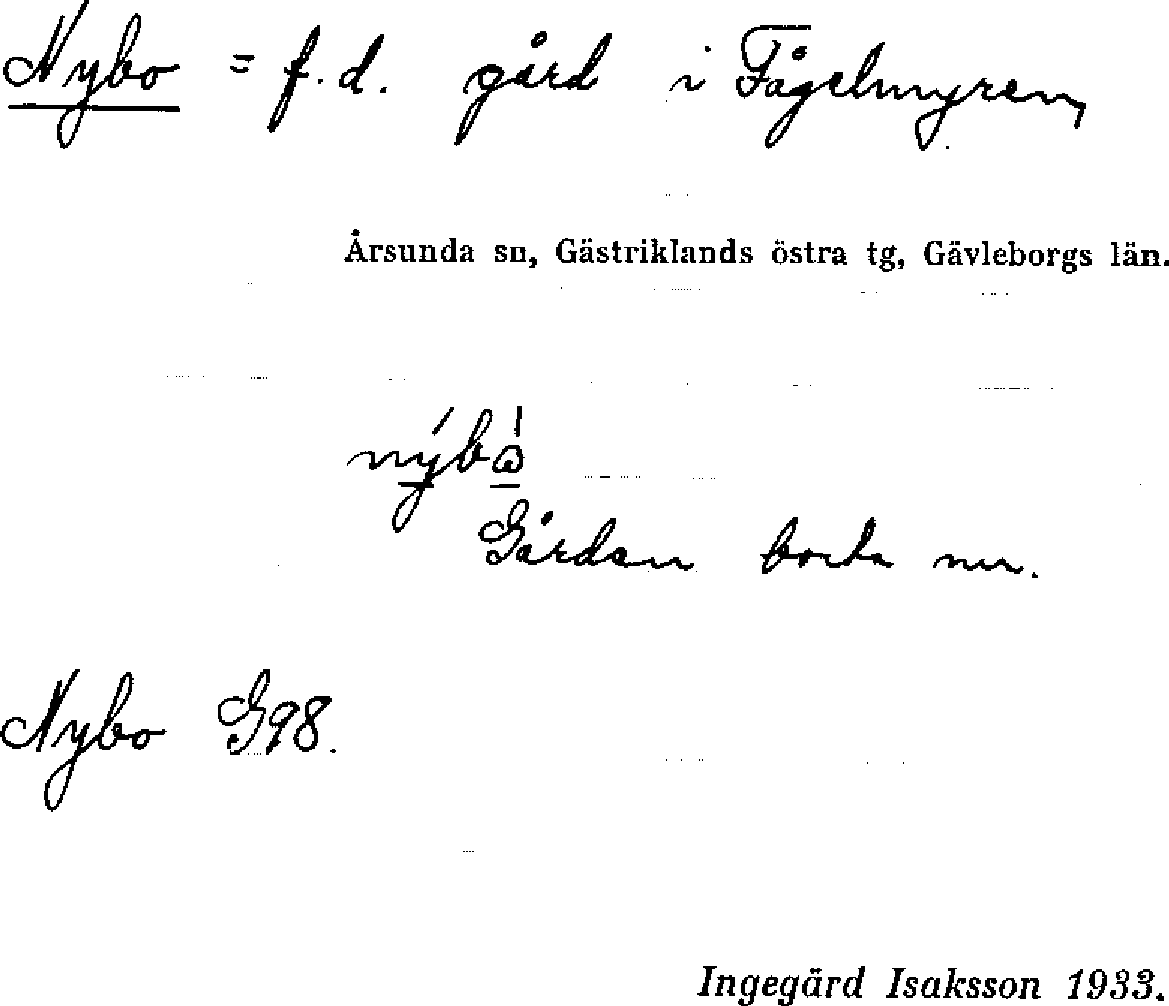 Nybo = f.d. gård i Fågelmyren,
Årsunda sn, Gästriklands östra tg, Gävleborgs län.
Gården borta nu.
Nybo G98.
Ingegärd Isaksson 1933.